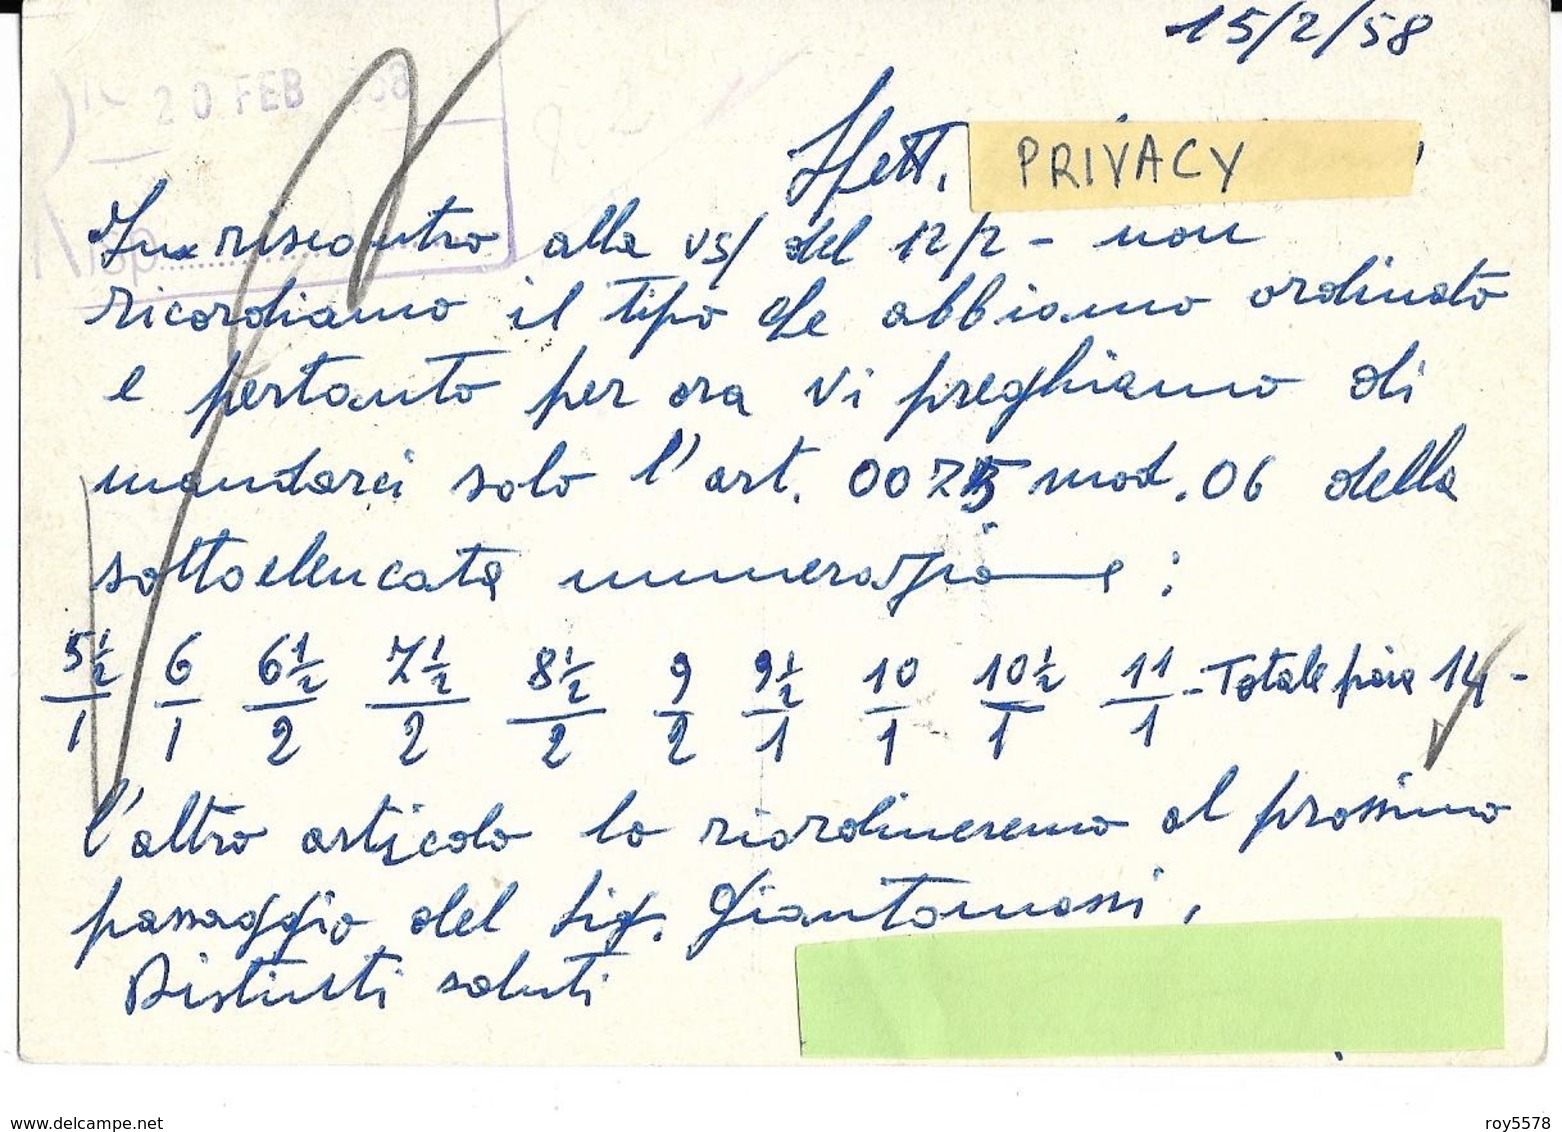 15/2/58
20 FEB
Spett. PRIVACY
In riscontro alla vs/ del 12/2 - non
ricordiamo il tipo che abbiamo ordinato
e pertanto per ora vi preghiamo di
mandarci solo l'art. 0075 mod. 06 della
sottoelencata numerazione:
5½/1 6/1 6½/2 7½/2 8½/2 9/2 9½/1 10/1 10½/1 11/1 - Totale paia 14 -
l'altro articolo lo riordineremo al prossimo
passaggio del Sig. Giantomassi,
Distinti saluti
www.delcampe.net
roy5578